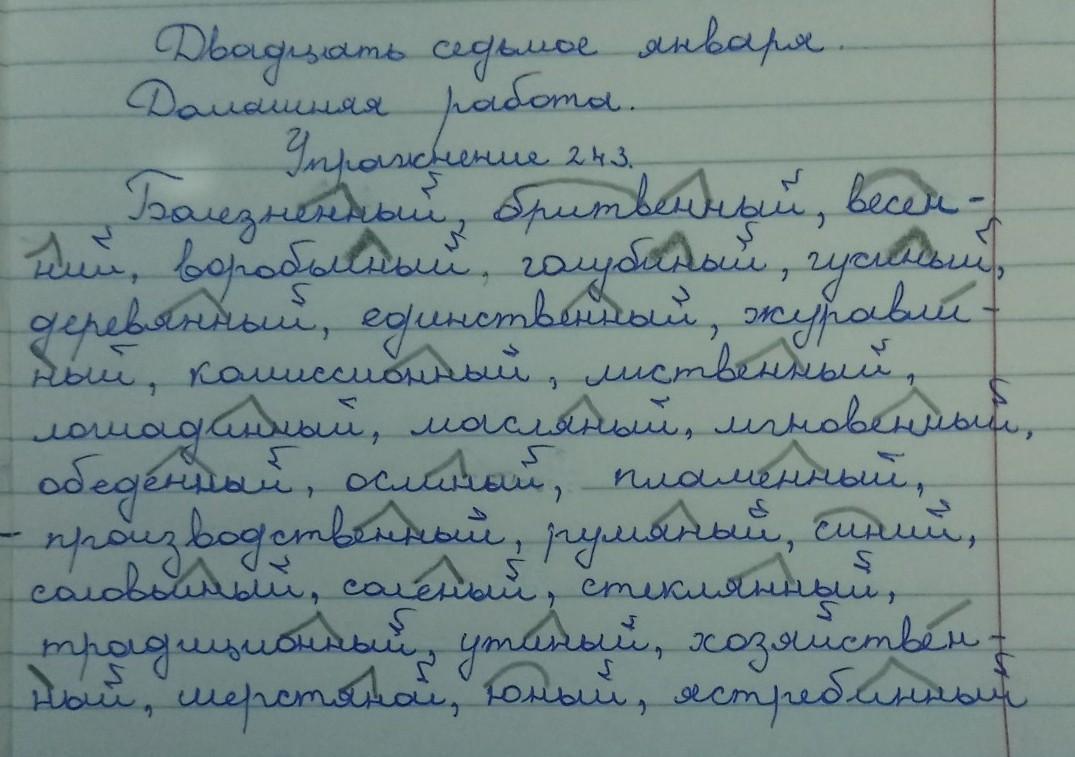 Двадцать седьмое января.
Домашняя работа.
Упражнение 243.
Болезненный, бритвенный, весен-
ний, воробьиный, голубиный, гусиный,
деревянный, единственный, журавли-
ный, комиссионный, лиственный,
лошадинный, масляный, мгновенный,
обеденный, ослиный, пламенный,
- производственный, румяный, синий,
соловьиный, солёный, стеклянный,
традиционный, утиный, хозяйствен-
ный, шерстяной, юный, ястребинный